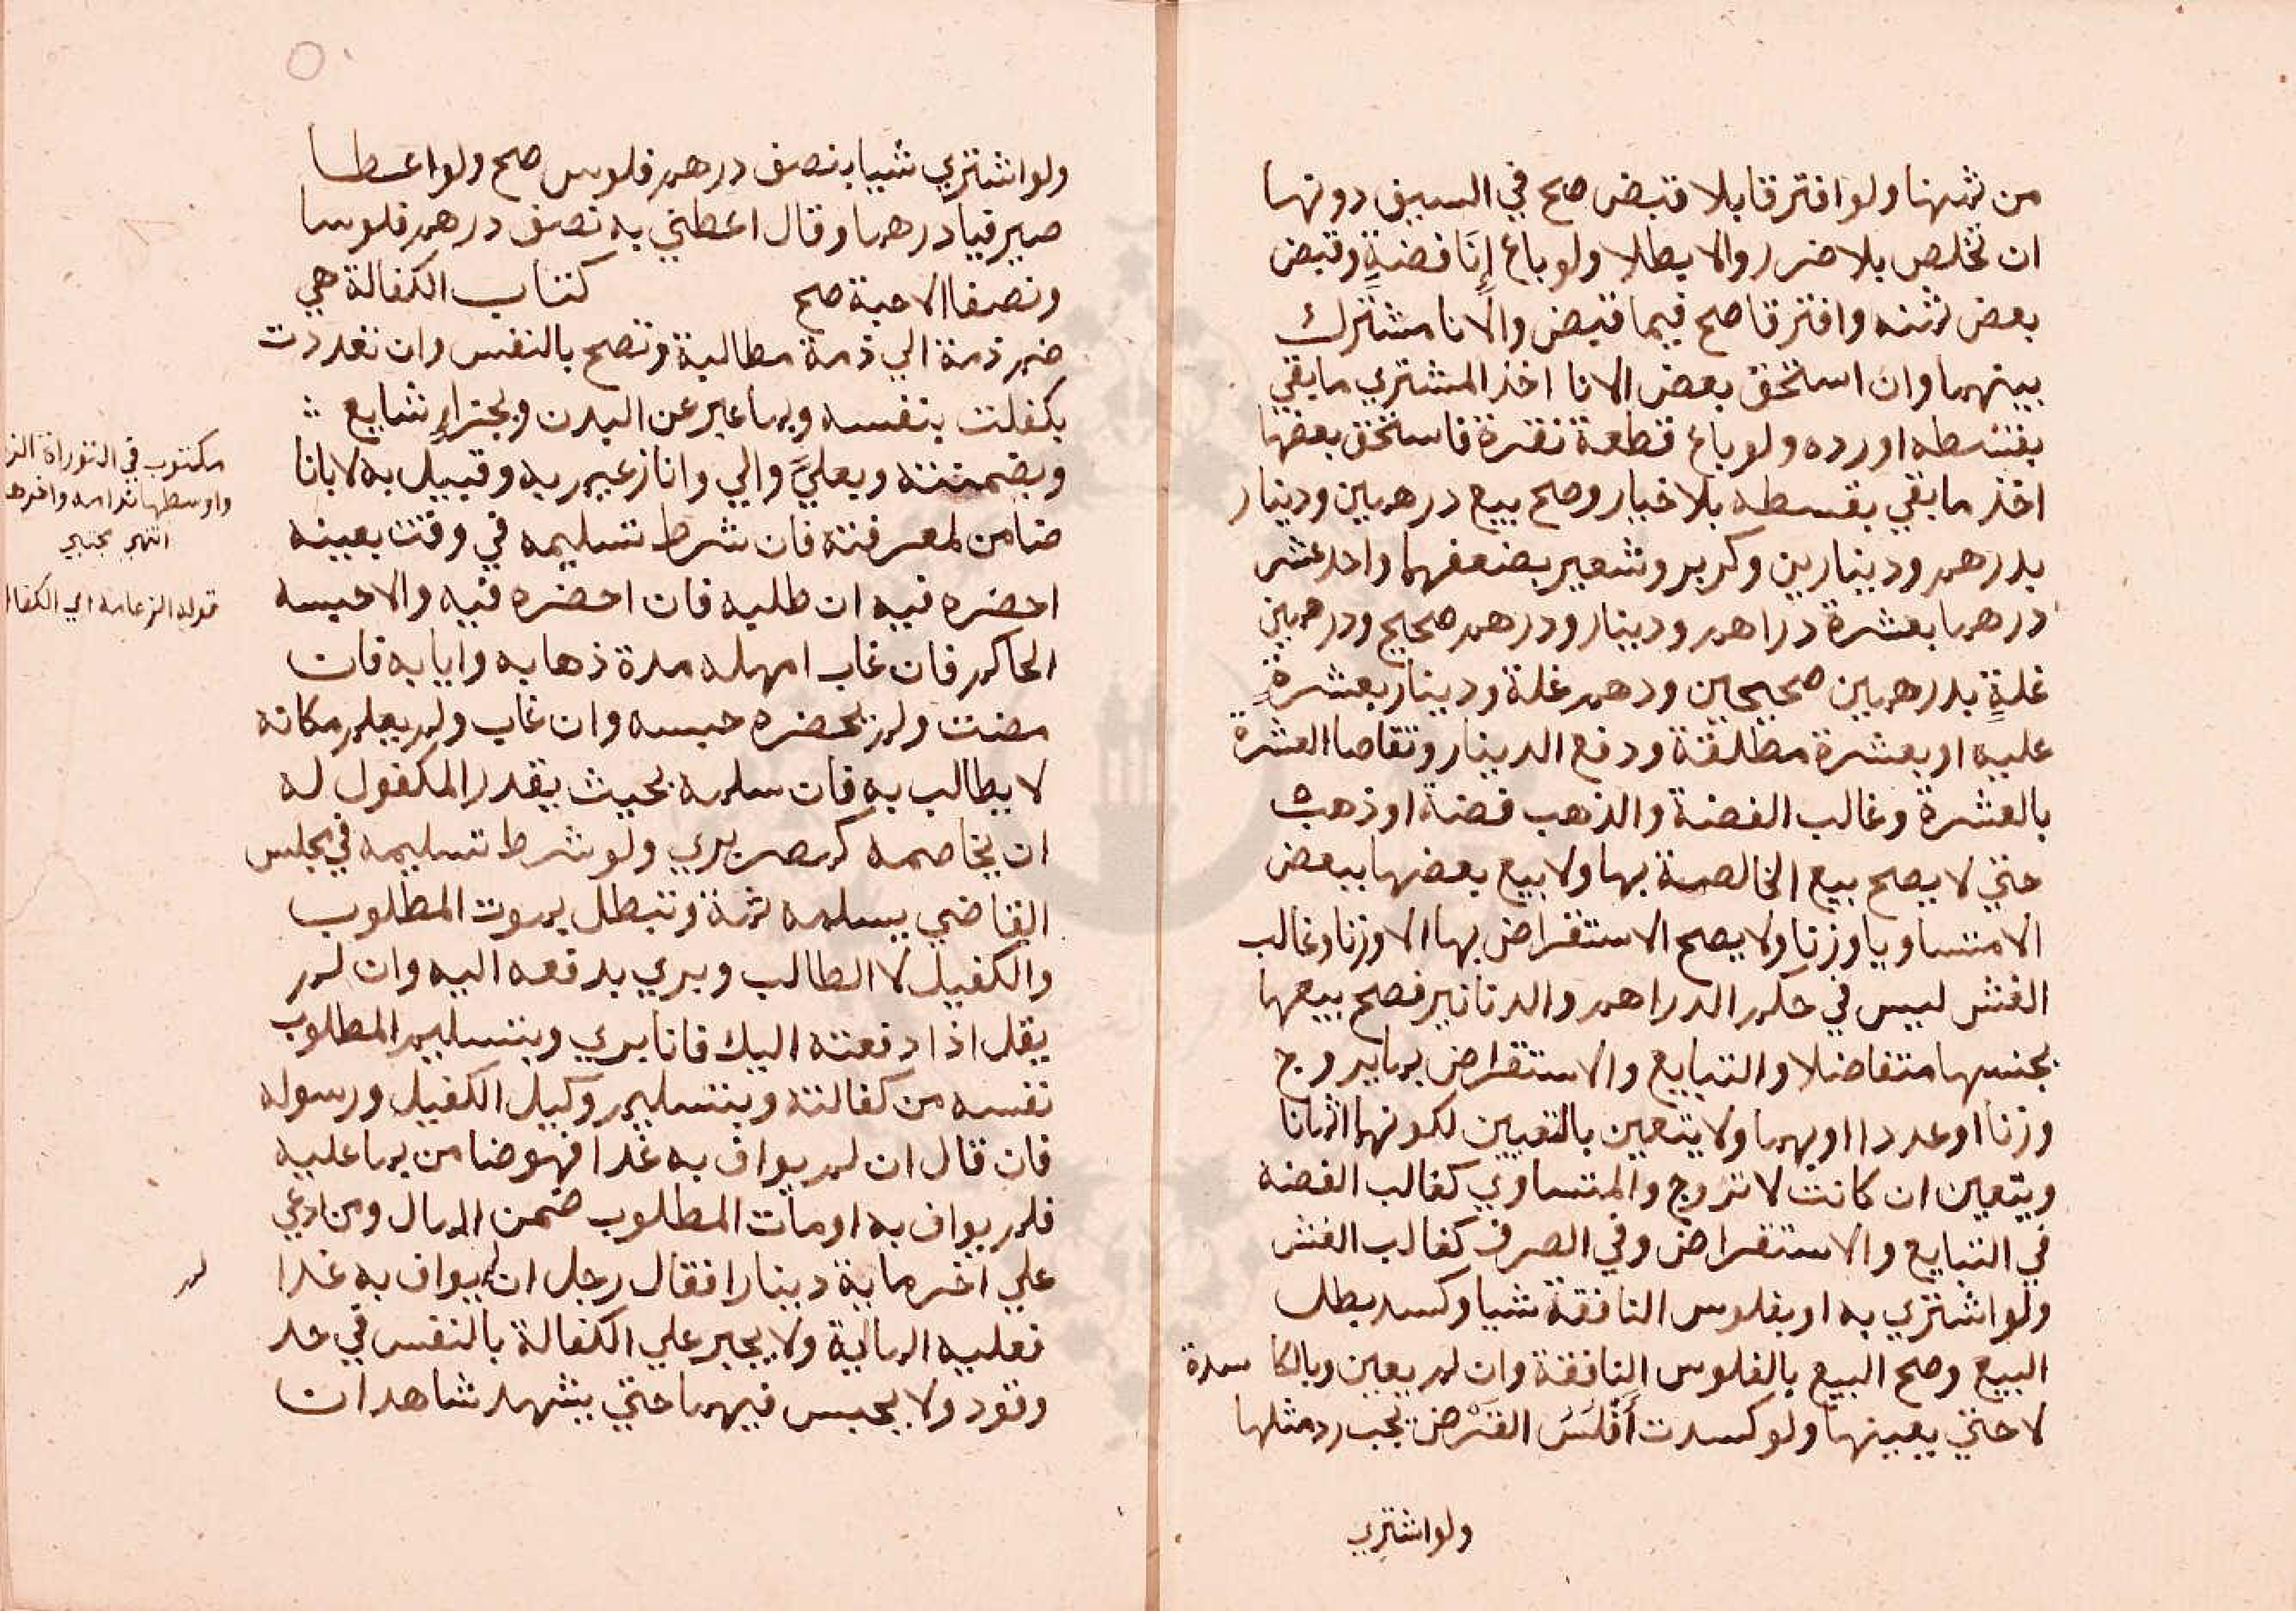 من ثمنها ولو افترقا بلا قبض صح في السيف دونها
ان تخلص بلا ضرر والا بطلا ولو باع إِنَا فضةٍ وقبض
بعض ثمنه وافترقا صح فيما قبض والانا مشترك
بينهما وان استحق بعض الانا اخذ المشتري ما بقي
بقسطه او رده ولو باع قطعة نقرة فاستحق بعضها
اخذ ما بقي بقسطه بلا خيار وصح بيع درهمين ودينار
بدرهم ودينارين وكر بر وشعير بضعفهما واحد عشر
درهما بعشرة دراهم ودينار ودرهم صحيح ودرهمين
غلةٍ بدرهمين صحيحين ودهم غلة ودينار بعشرةٍ
عليه او بعشرة مطلقة ودفع الدينار وتقاصا العشرة
بالعشرة وغالب الفضة والذهب فضة او ذهب
حتي لا يصح بيع الخالصة بها ولا بيع بعضها ببعض
الا متساويا وزنا ولا يصح الاستقراض بها الا وزنا وغالب
الغش ليس في حكم الدراهم والدنانير فصح بيعها
بجنسها متفاضلا والتبايع والاستقراض بما يروج
وزنا او عددا او بهما ولا يتعين بالتعيين لكونها اثمانا
ويتعين ان كانت لا تروج والمتساوي كغالب الفضة
في التبايع والاستقراض وفي الصرف كغالب الغش
ولو اشتري به او بفلوس النافقة شيا وكسد بطل
البيع وصح البيع بالفلوس النافقة وان لم يعين وبالكاسدة
لا حتي يعينها ولو كسدت أَفْلَسُ القَرْض يجب رد مثلها
ولو اشتري
ولو اشتري شيا بنصف درهم فلوس صح ولو اعطا
صيرفيا درهما وقال اعطني به نصف درهم فلوسا
ونصفا الا حبة صح كتاب الكفالة هي
ضم ذمة الي ذمة مطالبة وتصح بالنفس وان تعددت
بكفلت بنفسه وبما عبر عن البدن وبجزاءٍ شايع
وبضمنته وبعليَّ والي وانا زعيم به وقبيل به لا بانا
ضامن لمعرفته فان شرط تسليمه في وقت بعينه
احضره فيه ان طلبه فان احضره فيه والا حبسه
الحاكم فان غاب امهله مدة ذهابه وايابه فان
مضت ولم يحضره حبسه وان غاب ولم يعلم مكانه
لا يطالب به فان سلمه بحيث يقدر المكفول له
ان يخاصمه كمصر بري ولو شرط تسليمه في مجلس
القاضي يسلمه ثمة وتبطل بموت المطلوب
والكفيل لا الطالب وبري بدفعه اليه وان لم
يقل اذا دفعته اليك فانا بري وبتسليم المطلوب
نفسه من كفالته وبتسليم وكيل الكفيل ورسوله
فان قال ان لم يواف به غدا فهو ضامن بما عليه
فلم يواف به او مات المطلوب ضمن المال ومن ادعي
علي اخر ماية دينارا فقال رجل ان لم يواف به غدا
فعليه الماية ولا يجبر علي الكفالة بالنفس في حد
وقود ولا يحبس فيهما حتي يشهد شاهدان
مكتوب في التوراة
واوسطها ندامه واخرها
انتهي مجتبي
قوله الزعامة اي الكفا
لم